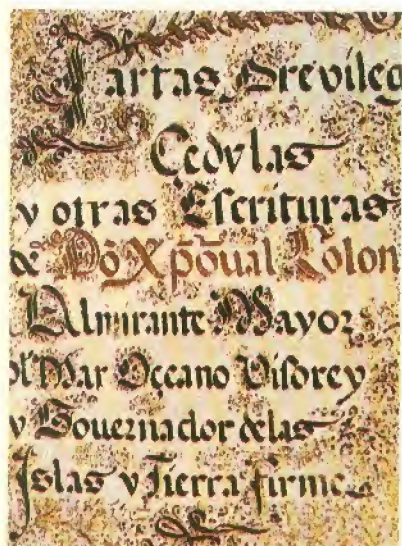 Cartas Previleg
Cedulas
y otras Escrituras
de Dõ Xpõual Colon
Almirante Mayor
dl Mar Occeano Visorey
y Gouernador de las
Islas y Tierra firme